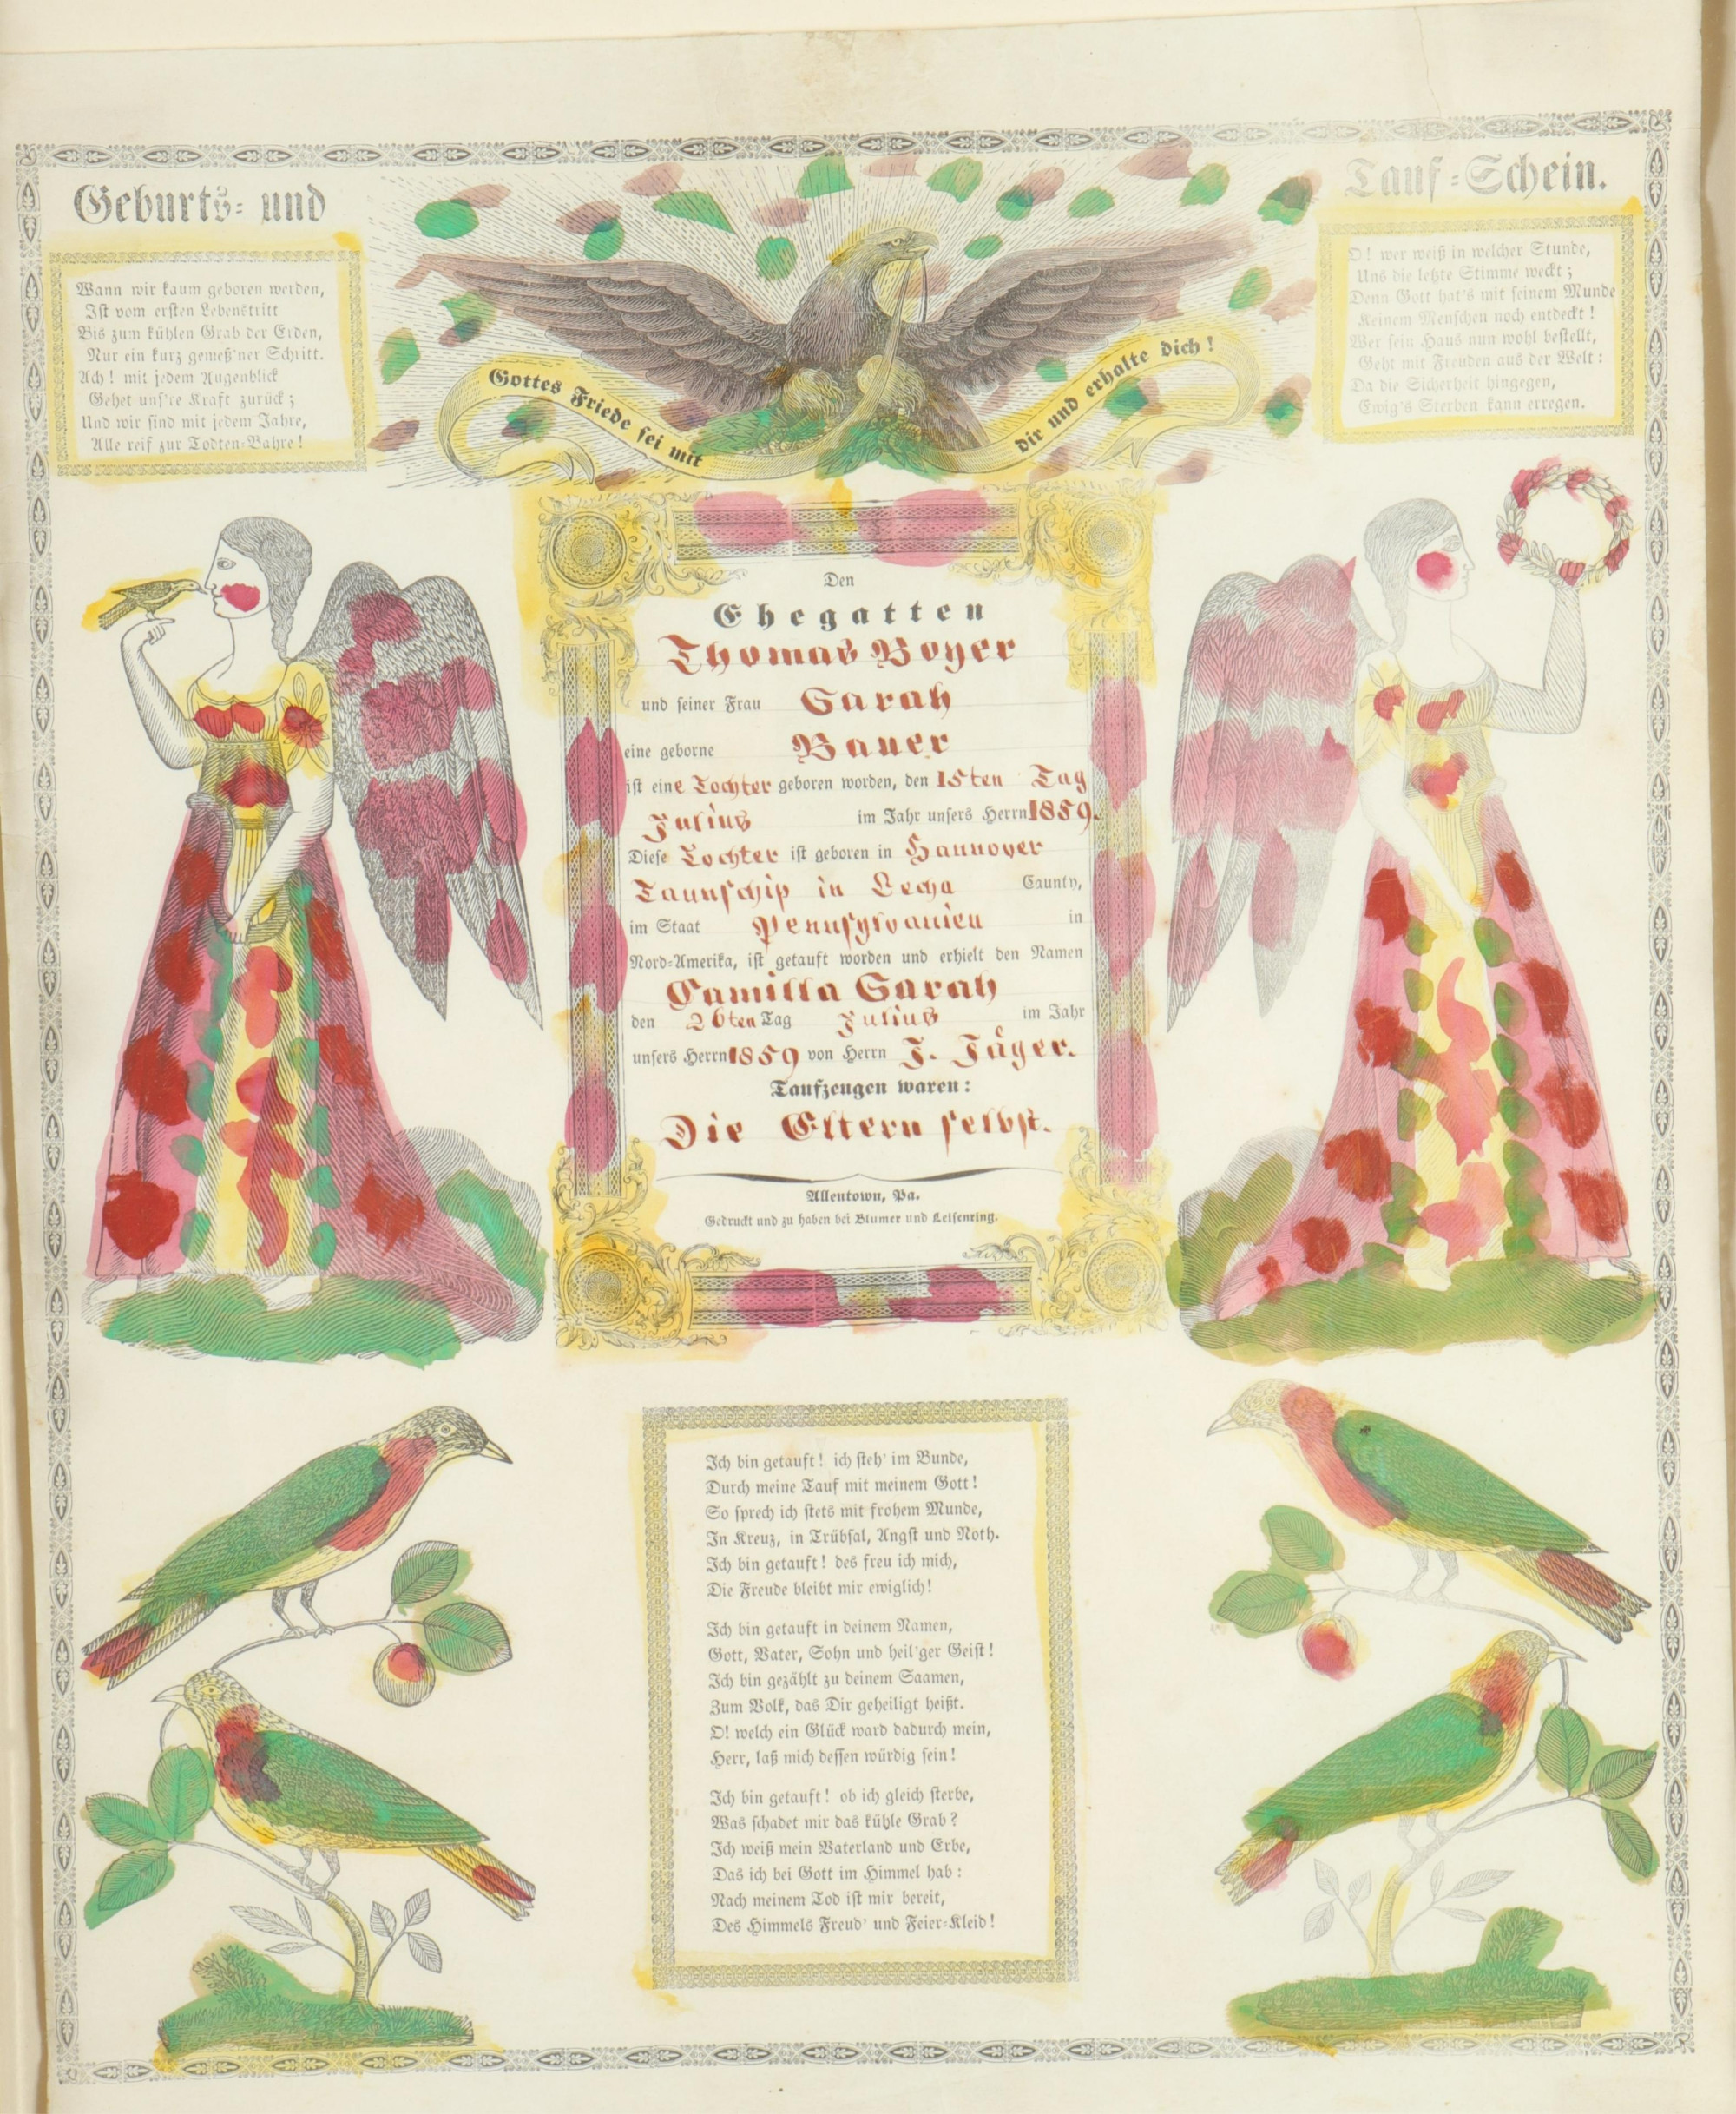 Geburts- und
Tauf-Schein.
Wann wir kaum geboren werden,
Ist vom ersten Lebenstritt
Bis zum kühlen Grab der Erden,
Nur ein kurz gemeß'ner Schritt.
Ach! mit jedem Augenblick
Gehet uns're Kraft zurück;
Und wir sind mit jedem Jahre,
Alle reif zur Todten-Bahre!
Gottes Friede sei mit
dir und erhalte dich!
O! wer weiß in welcher Stunde,
Uns die letzte Stimme weckt;
Denn Gott hat's mit seinem Munde
Keinem Menschen noch entdeckt!
Wer sein Haus nun wohl bestellt,
Geht mit Freuden aus der Welt:
Da die Sicherheit hingegen,
Ewig's Sterben kann erregen.
Den
Ehegatten
Thomas Boyer
und seiner Frau Sarah
eine geborne Bauer
ist eine Tochter geboren worden, den 15ten Tag
Julius im Jahr unsers Herrn 1859.
Diese Tochter ist geboren in Hannover
Taunschip in Lecha Caunty,
im Staat Pennsylvanien in
Nord-Amerika, ist getauft worden und erhielt den Namen
Camilla Sarah
den 26ten Tag Julius im Jahr
unsers Herrn 1859 von Herrn J. Jäger.
Taufzeugen waren:
Die Eltern selbst.
Allentown, Pa.
Gedruckt und zu haben bei Blumer und Leisenring.
Ich bin getauft! ich steh' im Bunde,
Durch meine Tauf mit meinem Gott!
So sprech ich stets mit frohem Munde,
In Kreuz, in Trübsal, Angst und Noth.
Ich bin getauft! des freu ich mich,
Die Freude bleibt mir ewiglich!
Ich bin getauft in deinem Namen,
Gott, Vater, Sohn und heil'ger Geist!
Ich bin gezählt zu deinem Saamen,
Zum Volk, das Dir geheiligt heißt.
O! welch ein Glück ward dadurch mein,
Herr, laß mich dessen würdig sein!
Ich bin getauft! ob ich gleich sterbe,
Was schadet mir das kühle Grab?
Ich weiß mein Vaterland und Erbe,
Das ich bei Gott im Himmel hab:
Nach meinem Tod ist mir bereit,
Des Himmels Freud' und Feier-Kleid!